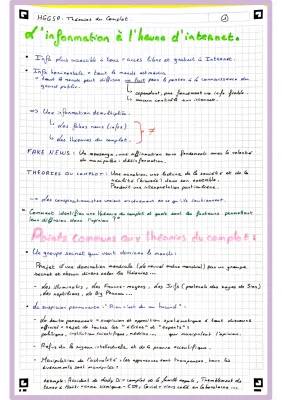 HGGSP : Théories du Complot
①
L'information à l'heure d'internet.
• Info plus accessible à tous = accès libre et gratuit à Internet.
• Info horizontale = tout le monde est média
= tout le monde peut diffuser, on tout pour la porter à la connaissance du
grand public.
↳ cependant, pas forcément une info fiable.
↳ aucun contrôle sur internet.
=> Une information démultipliée :
↳ des fakes news (infox)
↳ des théories du complot.
≠
FAKE NEWS : Un mensonge, une affirmation sans fondements avec la volonté
de manipuler : désinformation.
THEORIES DU COMPLOT : Une narration, une lecture de la société et de la
réalité (erronée) dans son ensemble.
Produit une interprétation particulière.
→ des complotistes voient évidemment ce qu'ils soutiennent.
• Comment identifier une théorie du complot et quels sont les facteurs permettant
leur diffusion dans l'opinion ?
Points communs aux théories du complot :
• Un groupe secret qui veut dominer le monde :
Projet d'une domination mondiale (un nouvel ordre mondial) par un groupe
secret et divers selon les théories...
→ des Illuminatis, des Francs-maçons, des Juifs (protocole des sages de Sion)
des reptiliens, de Big Pharma...
• Le suspicion permanente : "Rien n'est dû au hasard" :
- Le doute permanent = suspicion et opposition systématique à tout discours
officiel = rejet de toutes les "élites" et "experts" :
politiques, institution scientifiques, médias... qui manipulent l'opinion.
- Refus de la rigueur intellectuelle et de la preuve scientifique.
- Manipulation de l'actualité : les apparences sont trompeuses, tous les
événements sont manipulés :
exemple : Accident de Lady Di = complot de la famille royale, Tremblement de
terre à Haïti = arme sismique - CIA, Covid = virus créé en laboratoire...